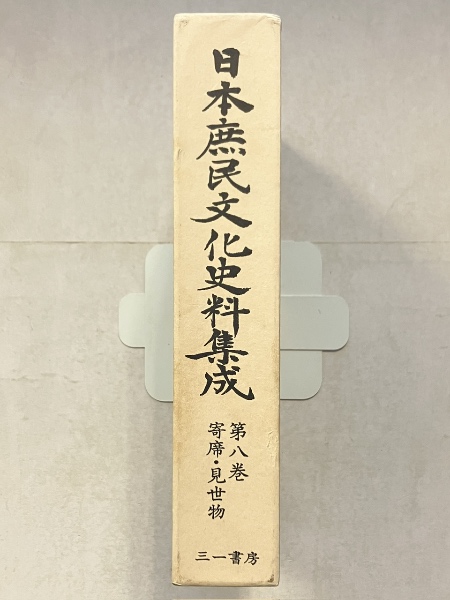 日本庶民文化史料集成
第八巻
寄席・見世物
三一書房